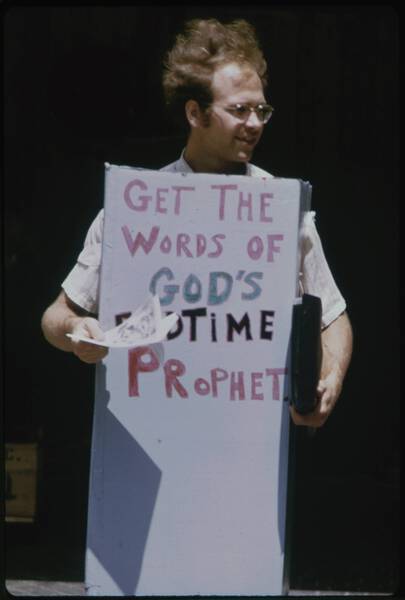 GET THE
WORDS OF
GOD'S
TIME
PROPHET